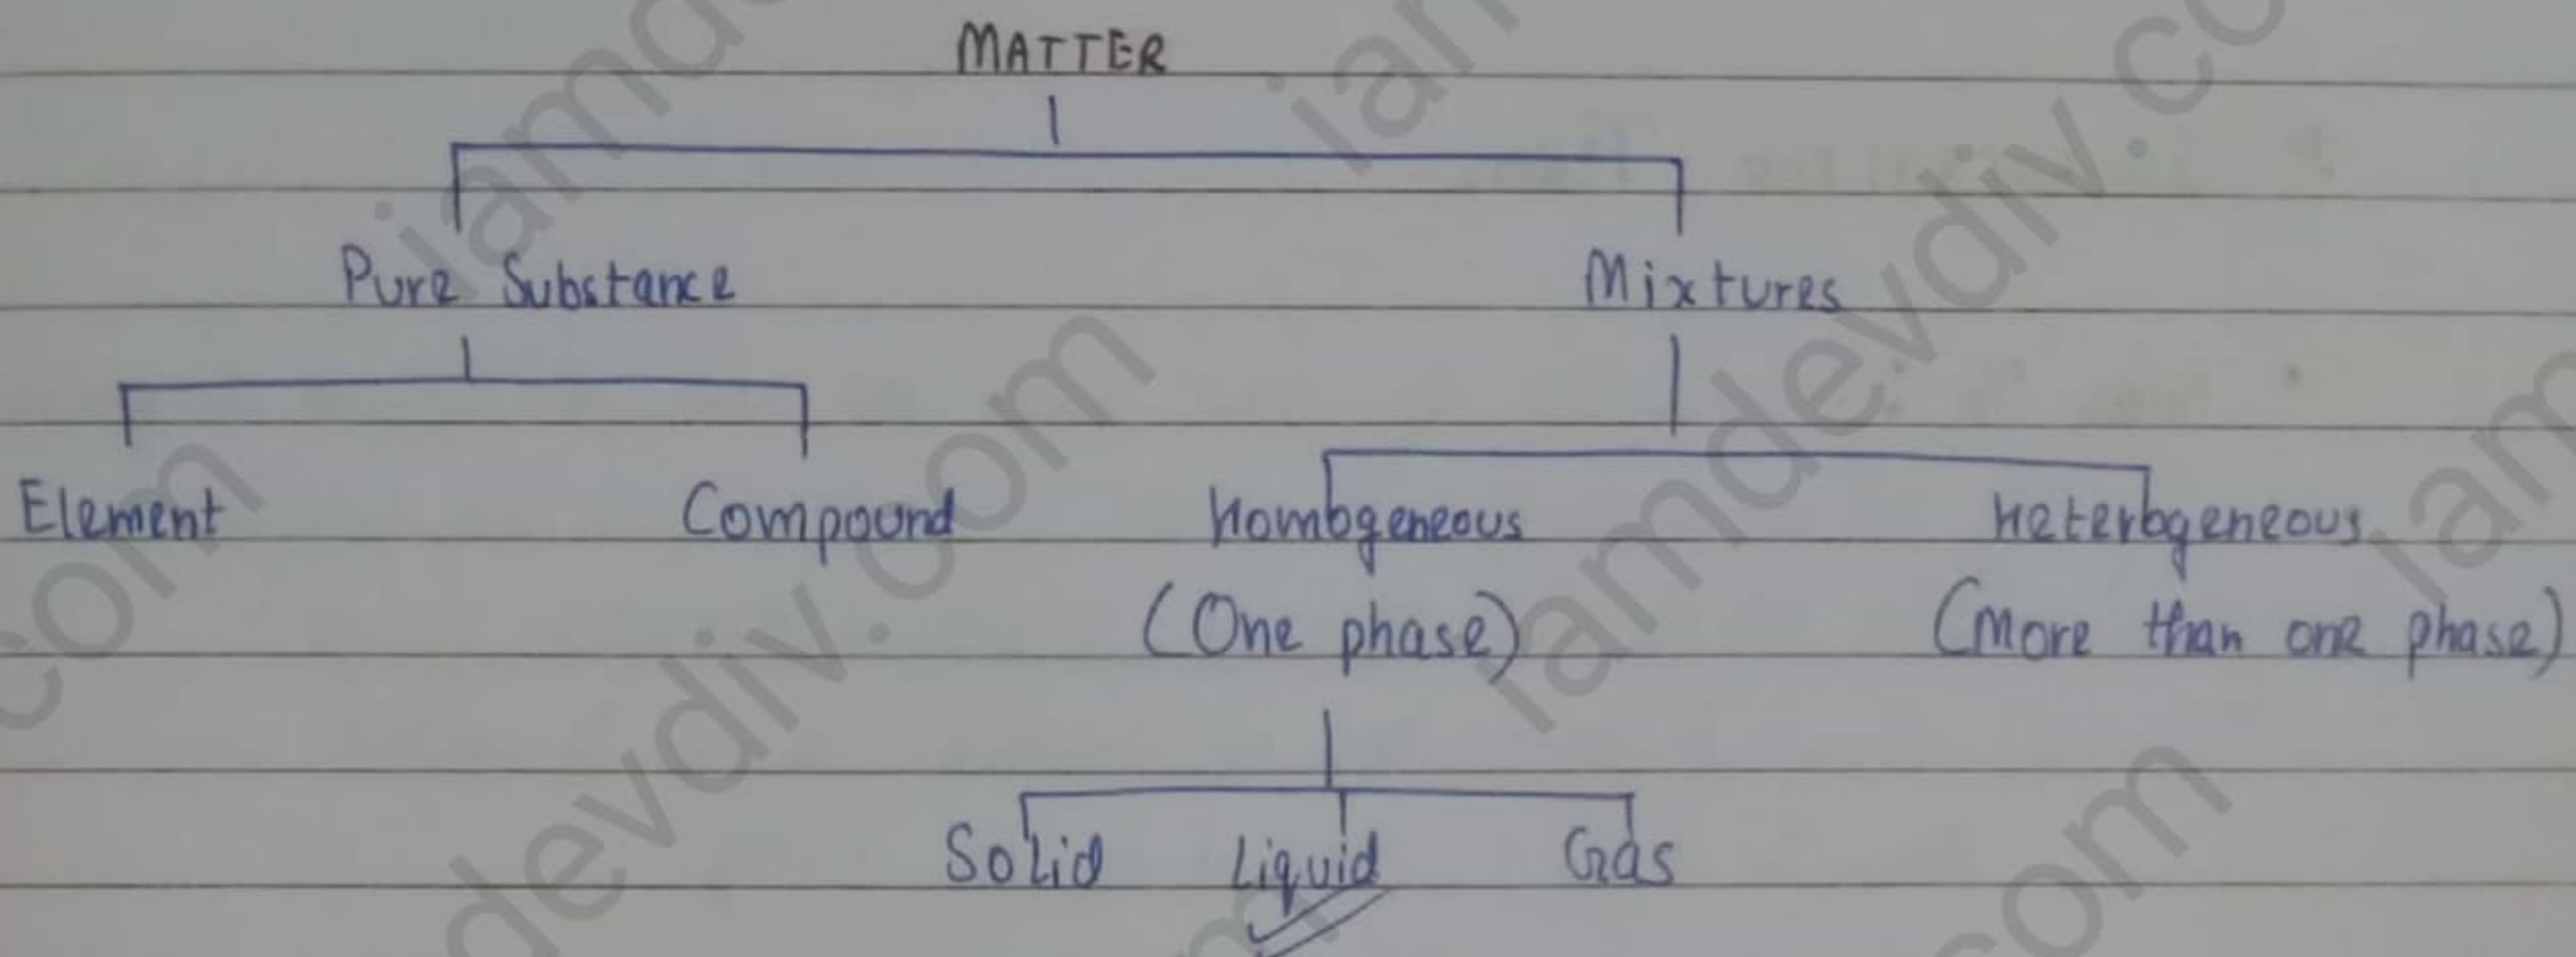 MATTER
Pure Substance Mixtures
Element Compound Homogeneous Heterogeneous
(One phase) (More than one phase)
Solid Liquid Gas
iamdevdiv.com